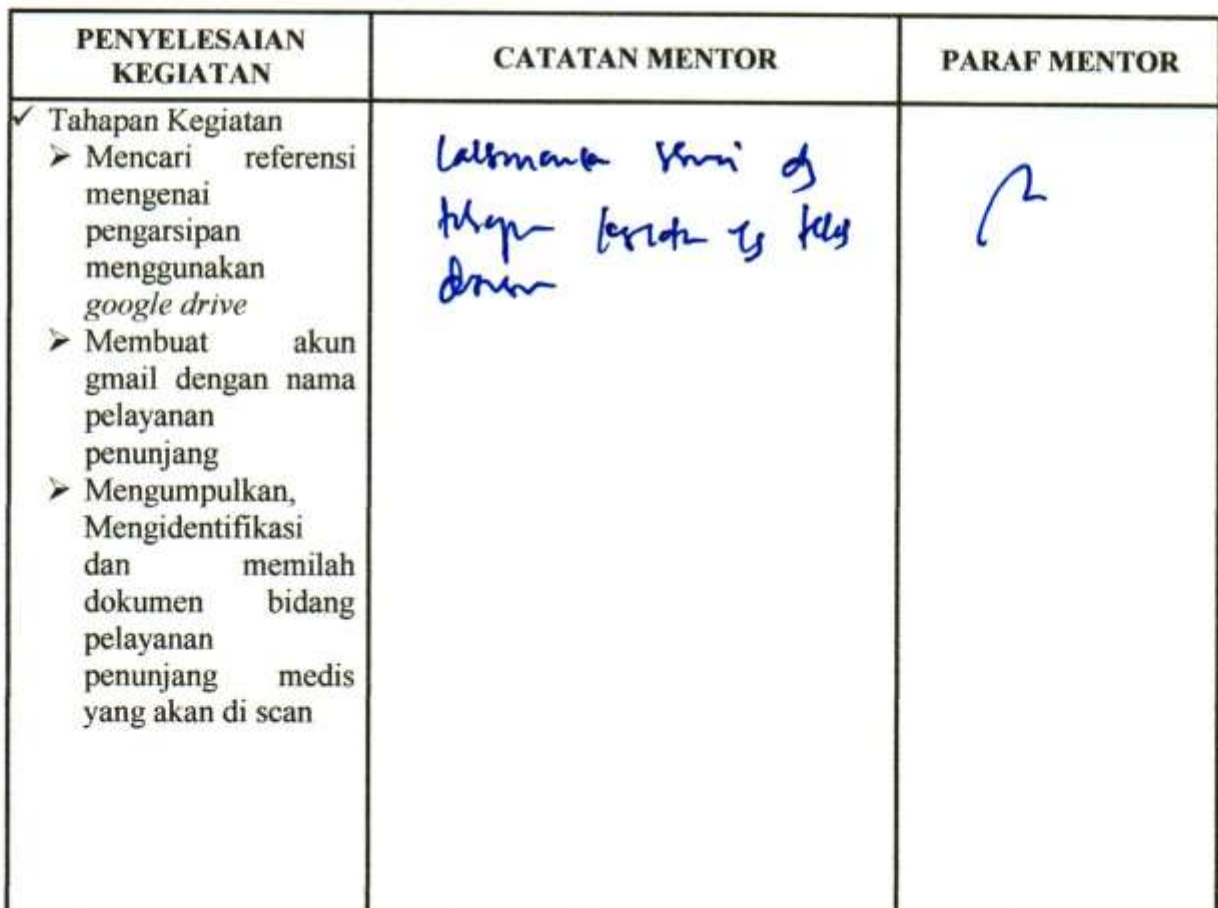 PENYELESAIAN
KEGIATAN
CATATAN MENTOR
PARAF MENTOR
✓ Tahapan Kegiatan
➢ Mencari referensi
mengenai
pengarsipan
menggunakan
google drive
➢ Membuat akun
gmail dengan nama
pelayanan
penunjang
➢ Mengumpulkan,
Mengidentifikasi
dan memilah
dokumen bidang
pelayanan
penunjang medis
yang akan di scan